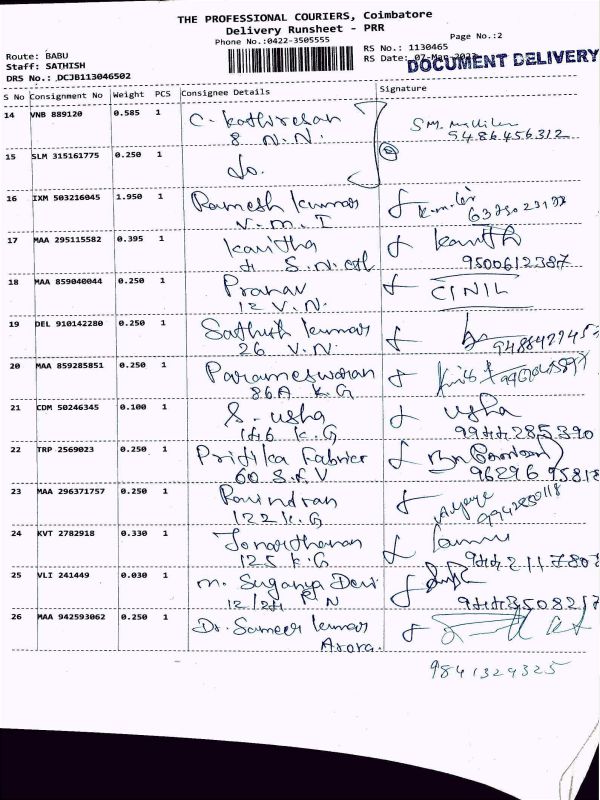 THE PROFESSIONAL COURIERS, Coimbatore
Delivery Runsheet - PRR
Phone No.:0422-3505555
Page No.:2
Route: BABU
RS No.: 1130465
Staff: SATHISH
RS Date: 07-Mar
DOCUMENT DELIVERY
DRS No.: DCJB113046502
S No Consignment No Weight PCS Consignee Details Signature
14 VNB 889120 0.585 1 C. Kathiresan
8 N.N.
9486456312
15 SLM 315161775 0.250 1 do.
16 IXM 503216045 1.950 1 Ramesh kumar
V.M.I
17 MAA 295115582 0.395 1 Kavitha
S.N.
9500612387
18 MAA 859040044 0.250 1 Pranav CINIL
12 V.N.
19 DEL 910142280 0.250 1 Sathish kumar
26 V.N.
20 MAA 859285851 0.250 1 Parameswaran
86A K.G
21 CDM 50246345 0.100 1 S. usha usha
146 K.G 9944285390
22 TRP 2569023 0.250 1 Pritika Fabrics
60 S.F.V 96296 95818
23 MAA 296371757 0.250 1 Ravindran
122 K.G
24 KVT 2782918 0.330 1 Janarthanan
125 K.G 9442117807
25 VLI 241449 0.030 1 M. Suganya Devi
12/24 N 9443508217
26 MAA 942593062 0.250 1 Dr. Sameer kumar
Arora.
9841329325